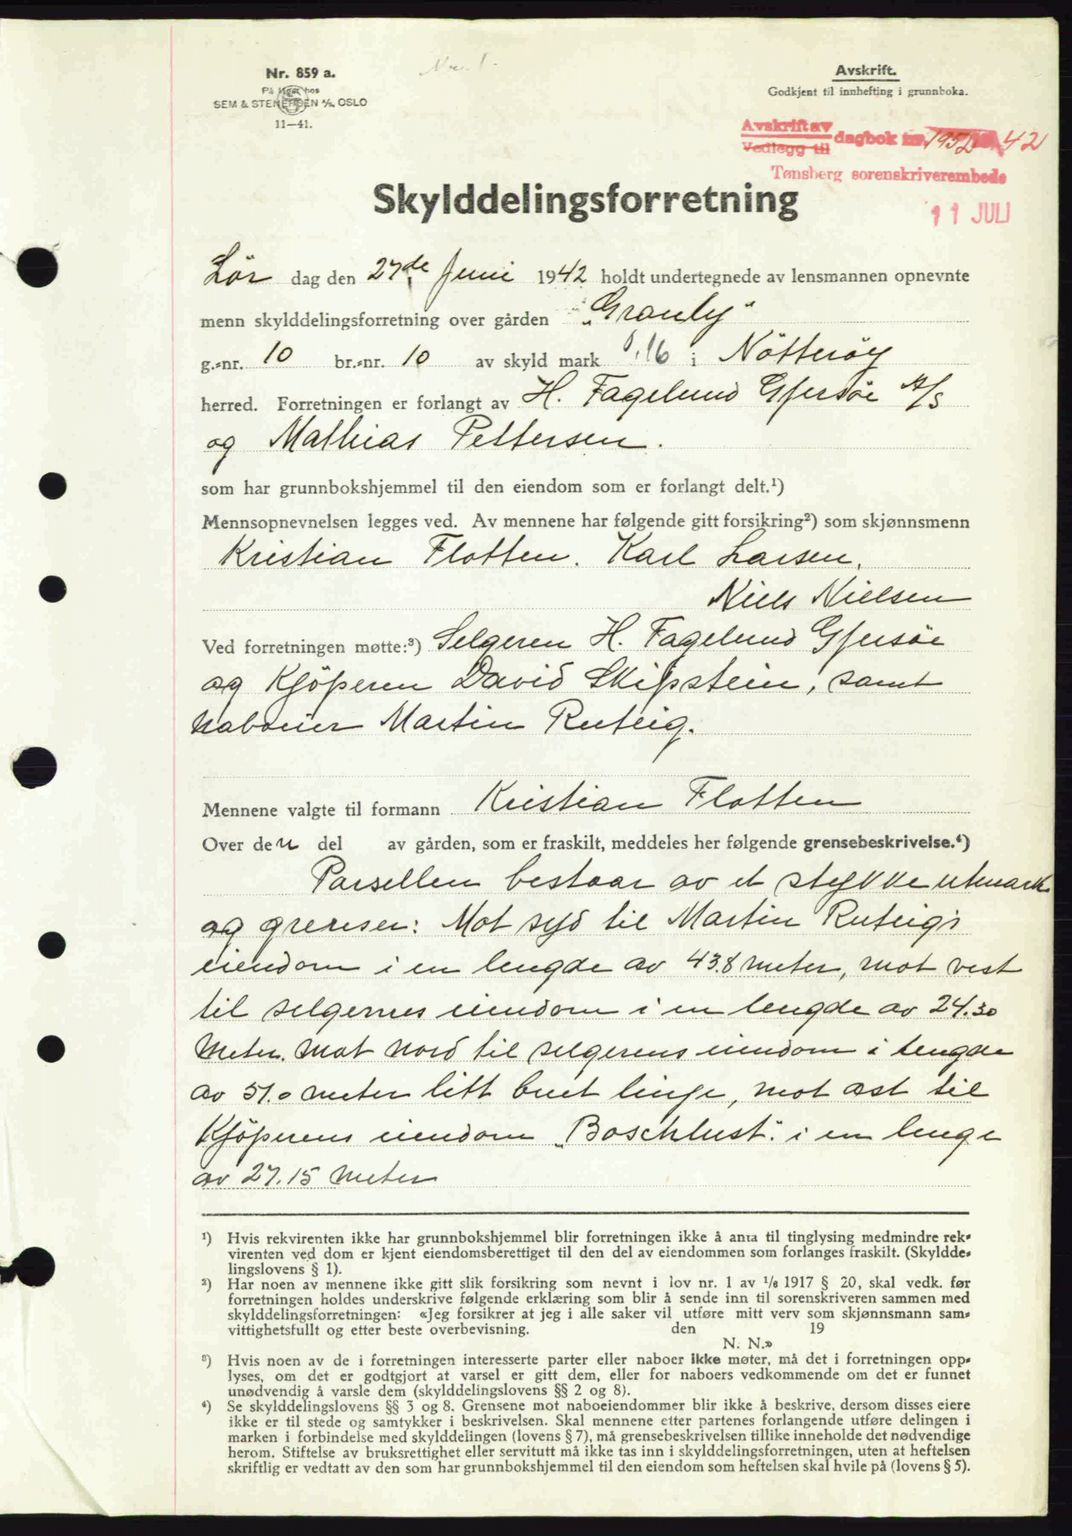 Nr. 859 a.
På lager hos
SEM & STENERSEN A/S, OSLO
11—41.
Avskrift.
Godkjent til innhefting i grunnboka.
Avskrift av
Vedlegg til
dagbok nr. 1952 42
Tønsberg sorenskriverembede
11 JULI
Skylddelingsforretning
Lør dag den 27de Juni 1942 holdt undertegnede av lensmannen opnevnte
menn skylddelingsforretning over gården „Granly"
g.-nr. 10 br.-nr. 10 av skyld mark 0,16 i Nötteröy
herred. Forretningen er forlangt av H. Fagelund Gjersöe A/S
og Mathias Pettersen.
som har grunnbokshjemmel til den eiendom som er forlangt delt.¹)
Mennsopnevnelsen legges ved. Av mennene har følgende gitt forsikring²) som skjønnsmenn
Kristian Flotten. Karl Larsen,
Niels Nielsen
Ved forretningen møtte:³) Selgeren H. Fagelund Gjersöe
og Kjöperen David Skipstein, samt
naboer Martin Ruteig.
Mennene valgte til formann Kristian Flotten
Over den del av gården, som er fraskilt, meddeles her følgende grensebeskrivelse.⁴)
Parsellen bestaar av et stykke utmark
og grenser: Mot syd til Martin Ruteig's
eiendom i en lengde av 43.8 meter, mot vest
til selgernes eiendom i en lengde av 24.30
meter. mot nord til selgerens eiendom i lengde
av 51.0 meter litt buet linje, mot øst til
Kjöperens eiendom „Boschlust". i en lenge
av 27.15 meter
¹) Hvis rekvirenten ikke har grunnbokshjemmel blir forretningen ikke å anta til tinglysing medmindre rek-
virenten ved dom er kjent eiendomsberettiget til den del av eiendommen som forlanges fraskilt. (Skyldde-
lingslovens § 1).
²) Har noen av mennene ikke gitt slik forsikring som nevnt i lov nr. 1 av 1/8 1917 § 20, skal vedk. før
forretningen holdes underskrive følgende erklæring som blir å sende inn til sorenskriveren sammen med
skylddelingsforretningen: «Jeg forsikrer at jeg i alle saker vil utføre mitt verv som skjønnsmann sam-
vittighetsfullt og etter beste overbevisning. den 19
N. N.»
³) Hvis noen av de i forretningen interesserte parter eller naboer ikke møter, må det i forretningen opp-
lyses, om det er godtgjort at varsel er gitt dem, eller for naboers vedkommende om det er funnet
unødvendig å varsle dem (skylddelingslovens §§ 2 og 8).
⁴) Se skylddelingslovens §§ 3 og 8. Grensene mot naboeiendommer blir ikke å beskrive, dersom disses eiere
ikke er til stede og samtykker i beskrivelsen. Skal mennene etter partenes forlangende utføre delingen i
marken i forbindelse med skylddelingen (lovens § 7), må grensebeskrivelsen tillike inneholde det nødvendige
herom. Stiftelse av bruksrettighet eller servitutt må ikke tas inn i skylddelingsforretningen, uten at heftelsen
skriftlig er vedtatt av den som har grunnbokshjemmel til den eiendom som heftelsen skal hvile på (lovens § 5).